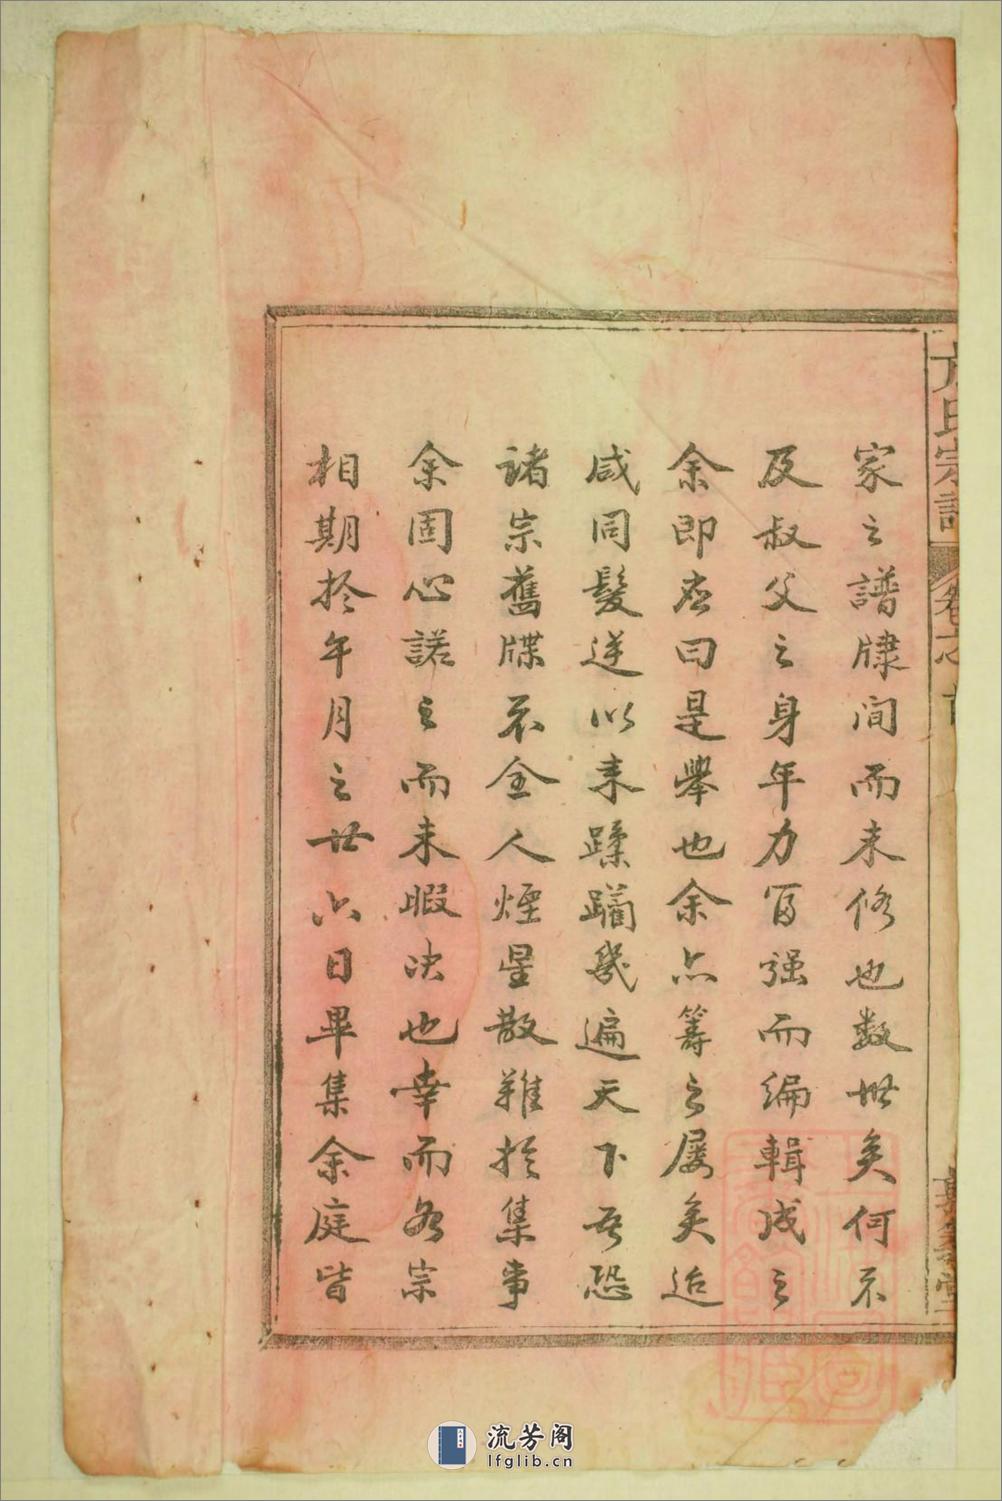 家之譜牒間而未修也数世矣何不
及叔父之身年力富强而编輯成之
余即應曰是舉也余亦籌之屡矣迨
咸同髮逆以来蹂躪幾遍天下吾恐
諸宗舊牒不全人煙星散難於集事
余固心諾之而未暇决也幸而各宗
相期於午月之廿六日畢集余庭皆
方氏宗譜
卷之首
流芳阁
lfglib.cn